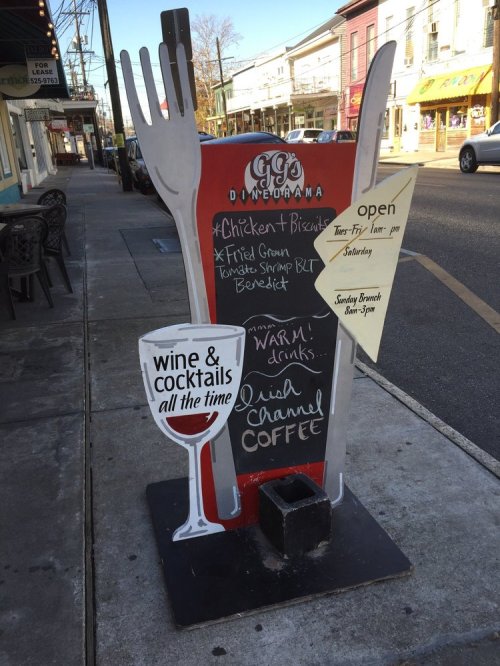 FOR
LEASE
525-9763
GG's
DINEORAMA
*Chicken + Biscuits
*Fried Green
Tomato Shrimp BLT
Benedict
mmm...
WARM!
drinks...
Irish
Channel
COFFEE
open
Tues-Fri 7am- pm
Saturday
Sunday Brunch
8am-3pm
wine &
cocktails
all the time